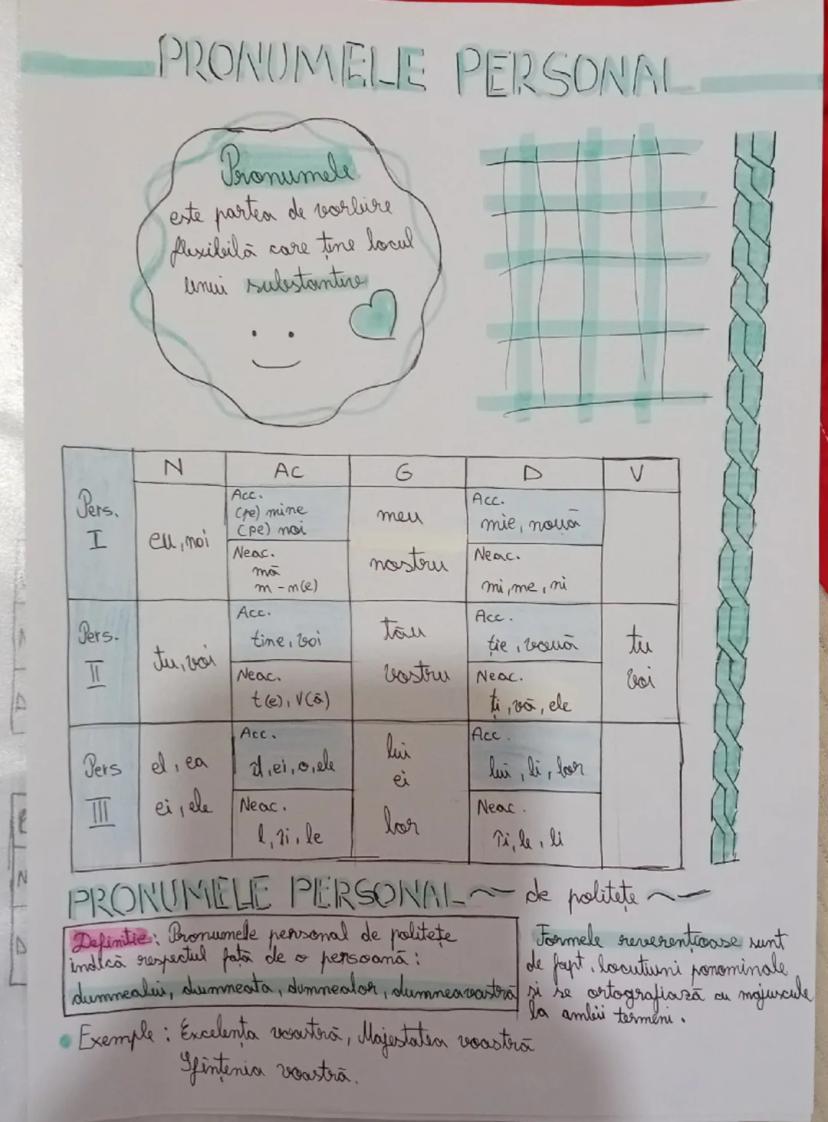 PRONUMELE PERSONAL
Pronumele
este partea de vorbire
flexibilă care ține locul
unui substantiv
N
AC
G
D
V
Pers.
I
eu, noi
Acc.
(pe) mine
(pe) noi
Neac.
mă
m-n(e)
meu
nostru
Acc.
mie, nouă
Neac.
mi, me, ni
Pers.
II
tu, voi
Acc.
tine, voi
Neac.
t(e), V(ă)
tău
vostru
Acc.
ție, vouă
Neac.
ți, vă, ele
tu
voi
Pers
III
el, ea
ei, ele
Acc.
ei, o, ele
Neac.
l, le
lui
ei
lor
Acc.
lui, li, lor
Neac.
le, li
PRONUMELE PERSONAL de politețe
Definitie: Pronumele personal de politețe
indică respectul față de o persoană:
dumnealui, dumneata, dumnealor, dumneavoastră
Formele reverențioase sunt
de fapt, locutiuni ponominale
și se ortografiază cu majuscule
la ambii termeni.
Exemple: Excelența voastră, Majestatea voastră
Sfințenia voastră.